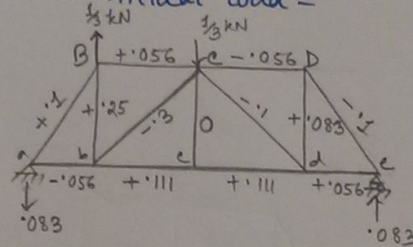 1/3 kN 1/3 kN
B +.056 C -.056 D
+.1 +.25 -.3 0 -.1 +.083 -.1
a b c d e
-.056 +.111 +.111 +.056
.083 .083